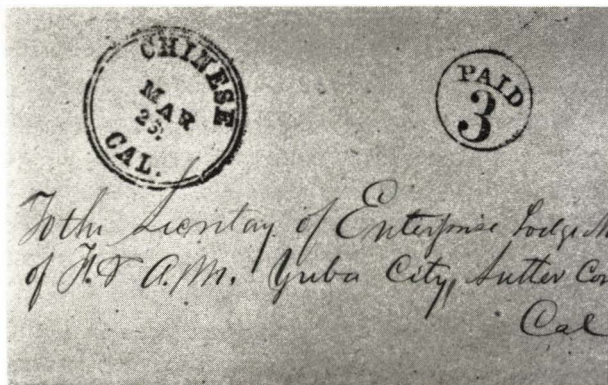 CHINESE
MAR
25.
CAL.
PAID
3
To the Secretary of Enterprise Lodge
of F. & A. M. Yuba City, Sutter
Cal